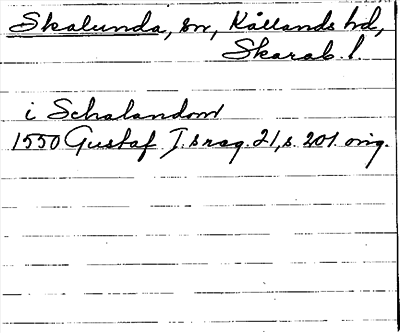 Skalunda, sn, Kållands hd,
Skarab. l.
i Schalandom
1550 Gustaf I.s reg. 21, s. 201. orig.